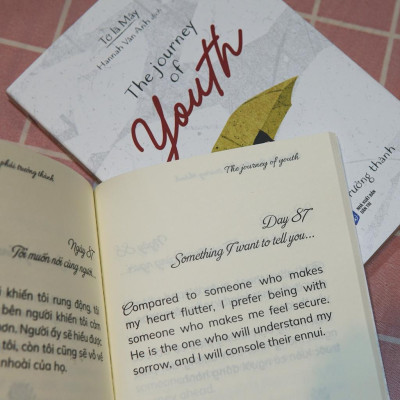 Tớ là Mây
Hannah Vân Anh
The journey
of
Youth
trưởng thành
phía trưởng thành
Ngày 87
Tôi muốn nói cùng người...
i khiến tôi rung động, tôi
bên người khiến tôi cảm
Người ấy sẽ hiểu được
tôi, còn tôi cũng sẽ vỗ về
nhoài của họ.
The journey of youth
Day 87
Something I want to tell you...
Compared to someone who makes
my heart flutter, I prefer being with
someone who makes me feel secure.
He is the one who will understand my
sorrow, and I will console their ennui.